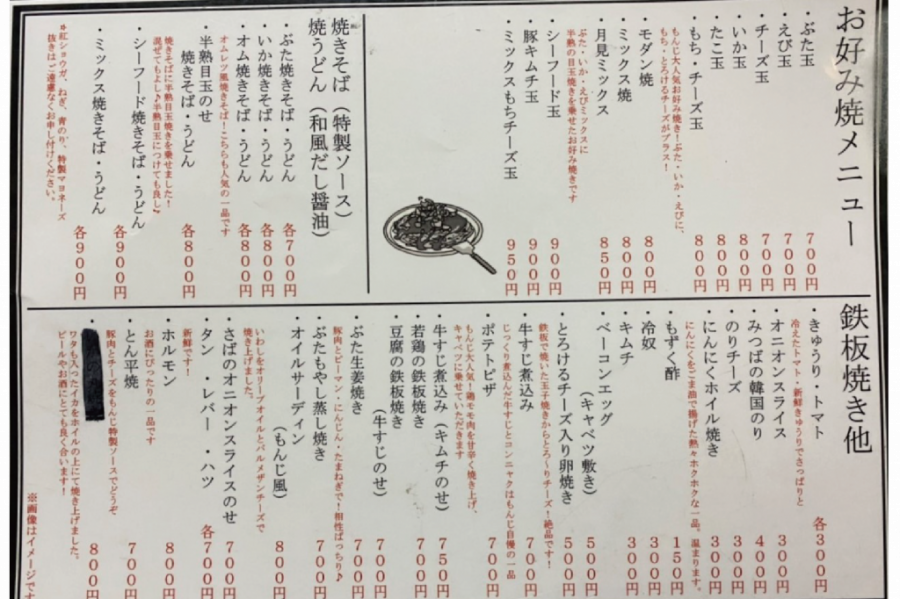 お好み焼メニュー
・ぶた玉 700円
・えび玉 700円
・チーズ玉 700円
・いか玉 800円
・たこ玉 800円
・もち・チーズ玉 800円
もんじ大人気お好み焼き!ぶた・いか・えびに、
もち・とろけるチーズがプラス!
・モダン焼 800円
・ミックス焼 800円
・月見ミックス 850円
ぶた・いか・えびミックスに
半熟の目玉焼きを乗せたお好み焼きです
・シーフード玉 900円
・豚キムチ玉 900円
・ミックスもちチーズ玉 950円
焼きそば(特製ソース)
焼うどん(和風だし醤油)
・ぶた焼きそば・うどん 各700円
・いか焼きそば・うどん 各800円
・オム焼きそば・うどん 各800円
オムレツ風焼きそば!こちらも人気の一品です
・半熟目玉のせ
焼きそば・うどん 各800円
焼きそばに半熟目玉焼きを乗せました!
混ぜてもよし♪半熟目玉につけても良し♪
・シーフード焼きそば・うどん 各900円
・ミックス焼きそば・うどん 各900円
※紅ショウガ、ねぎ、青のり、特製マヨネーズ
抜きはご遠慮なくお申し付けください。
鉄板焼き他
・きゅうり・トマト 各300円
冷えたトマト・新鮮きゅうりでさっぱりと
・オニオンスライス 300円
・みつばの韓国のり 400円
・のりチーズ 300円
・にんにくホイル焼き 300円
にんにくをごま油で揚げた熱々ホクホクな一品。温まります。
・もずく酢 150円
・冷奴 300円
・キムチ 300円
・ベーコンエッグ
(キャベツ敷き) 500円
・とろけるチーズ入り卵焼き 500円
鉄板で焼いた玉子焼きからとろ〜りチーズ!絶品です!
・牛すじ煮込み 700円
じっくり煮込んだ牛すじとコンニャクはもんじ自慢の一品
・ポテトピザ 700円
・牛すじ煮込み(キムチのせ) 750円
・若鶏の鉄板焼き 700円
もんじ大人気!鶏モモ肉を甘辛く焼き上げ、
キャベツに乗せていただきます
・豆腐の鉄板焼き
(牛すじのせ) 700円
・ぶた生姜焼き 700円
豚肉とピーマン・にんじん・たまねぎで!相性ばっちり♪
・ぶたもやし蒸し焼き 700円
・オイルサーディン
(もんじ風) 800円
いわしをオリーブオイルとパルメザンチーズで
焼き上げました!
・さばのオニオンスライスのせ 700円
・タン・レバー・ハツ 各700円
新鮮です!
・ホルモン 800円
お酒にぴったりの一品です
・とん平焼 700円
豚肉とチーズをもんじ特製ソースでどうぞ、
・ 800円
ワタも入ったイカをホイルの上にて焼き上げました。
ビールやお酒にとても良く合います!
※画像はイメージです